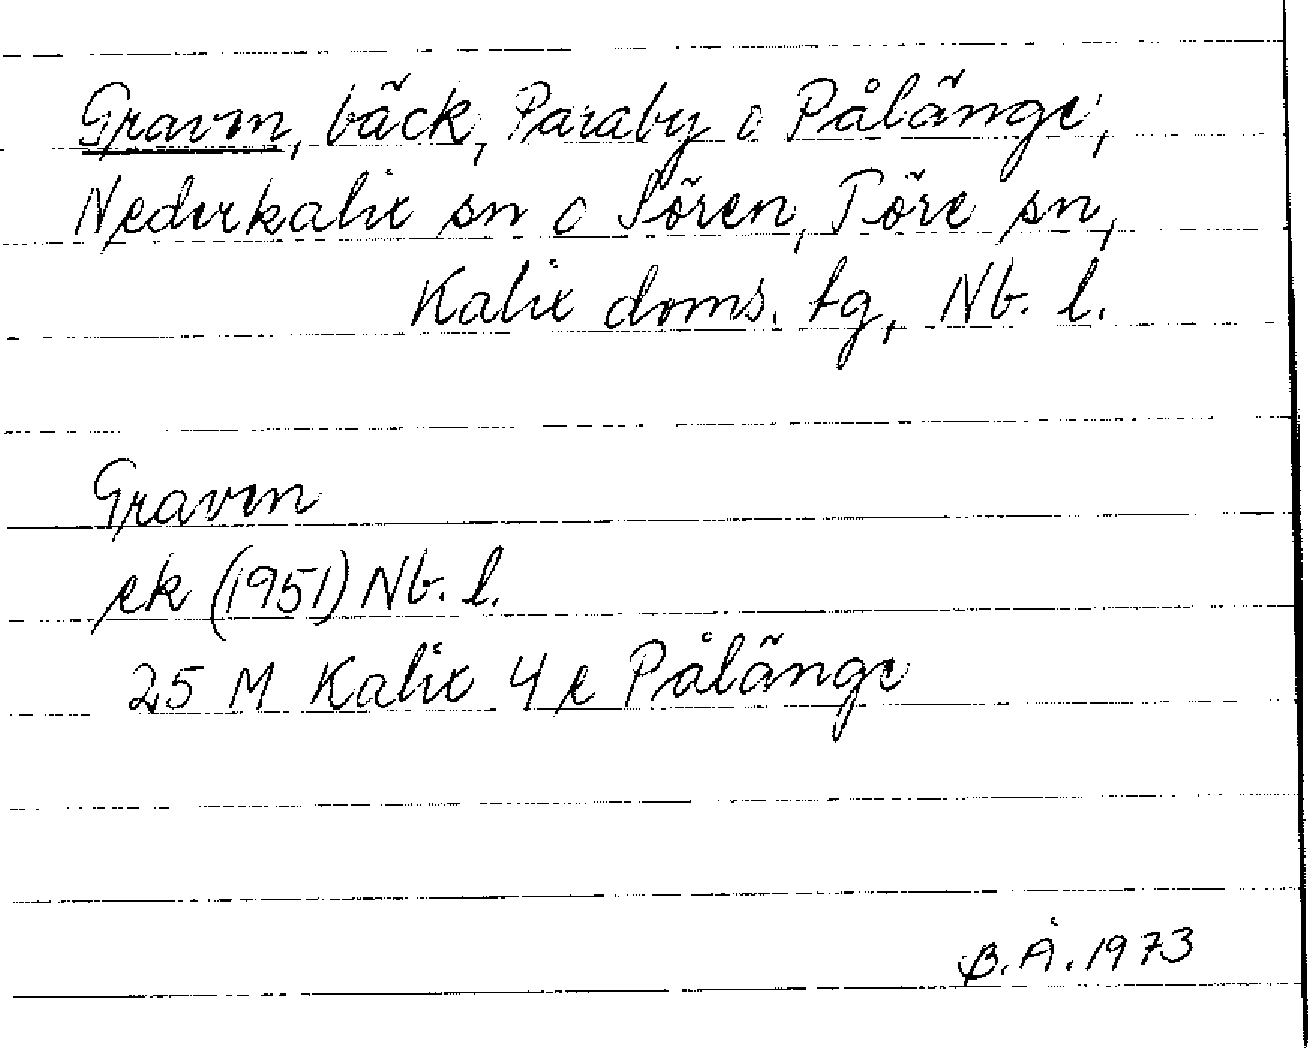 Graven, bäck, Paraby o Pålänge,
Nederkalix sn o Sören, Töre sn,
Kalix doms. tg, Nb. l.
Graven
ek (1951) Nb. l.
25 M Kalix 4 e Pålänge
B.Å. 1973